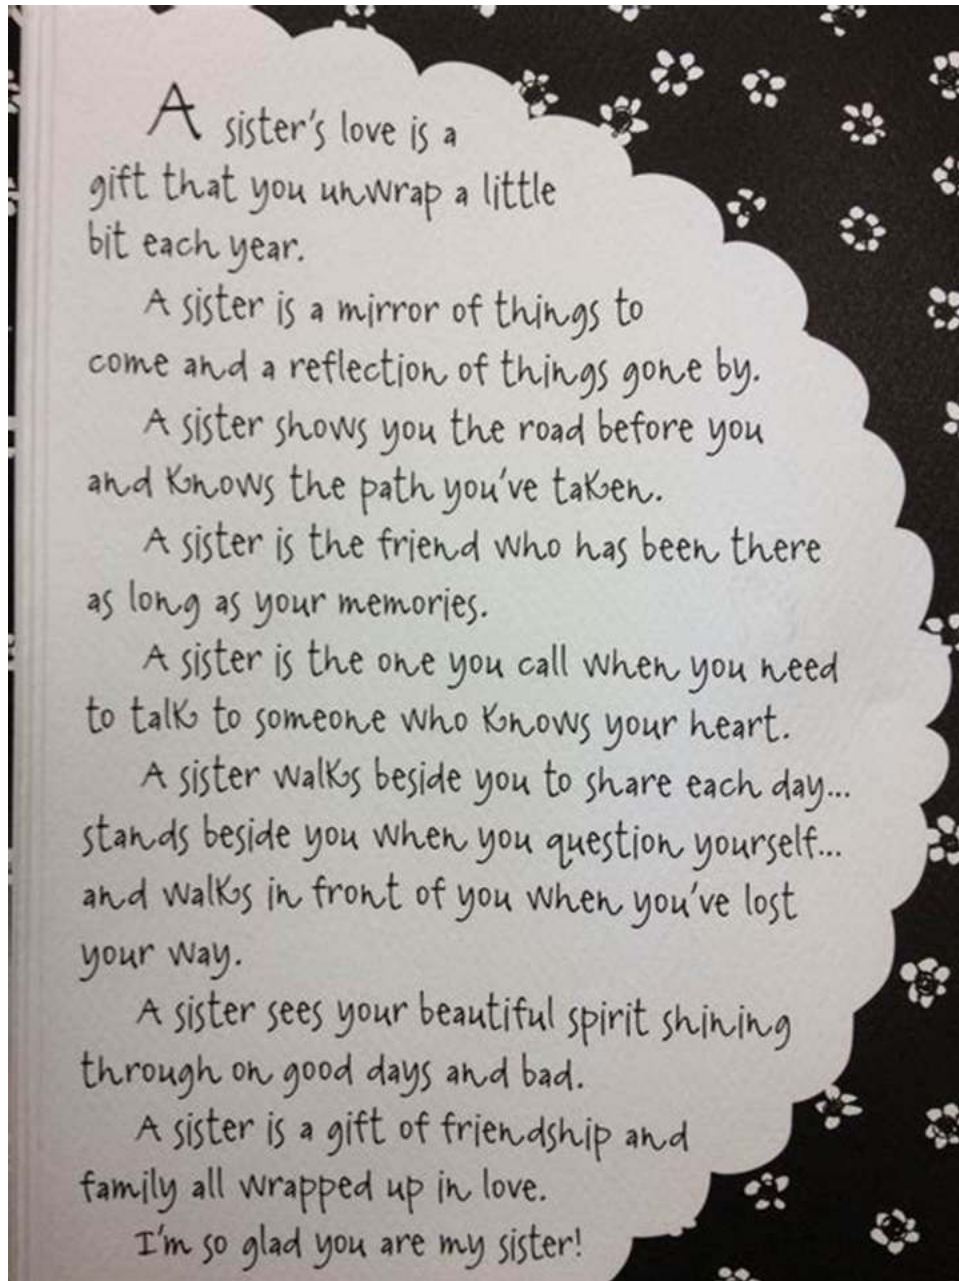 A sister's love is a
gift that you unwrap a little
bit each year.
A sister is a mirror of things to
come and a reflection of things gone by.
A sister shows you the road before you
and knows the path you've taken.
A sister is the friend who has been there
as long as your memories.
A sister is the one you call when you need
to talk to someone who knows your heart.
A sister walks beside you to share each day...
stands beside you when you question yourself...
and walks in front of you when you've lost
your way.
A sister sees your beautiful spirit shining
through on good days and bad.
A sister is a gift of friendship and
family all wrapped up in love.
I'm so glad you are my sister!